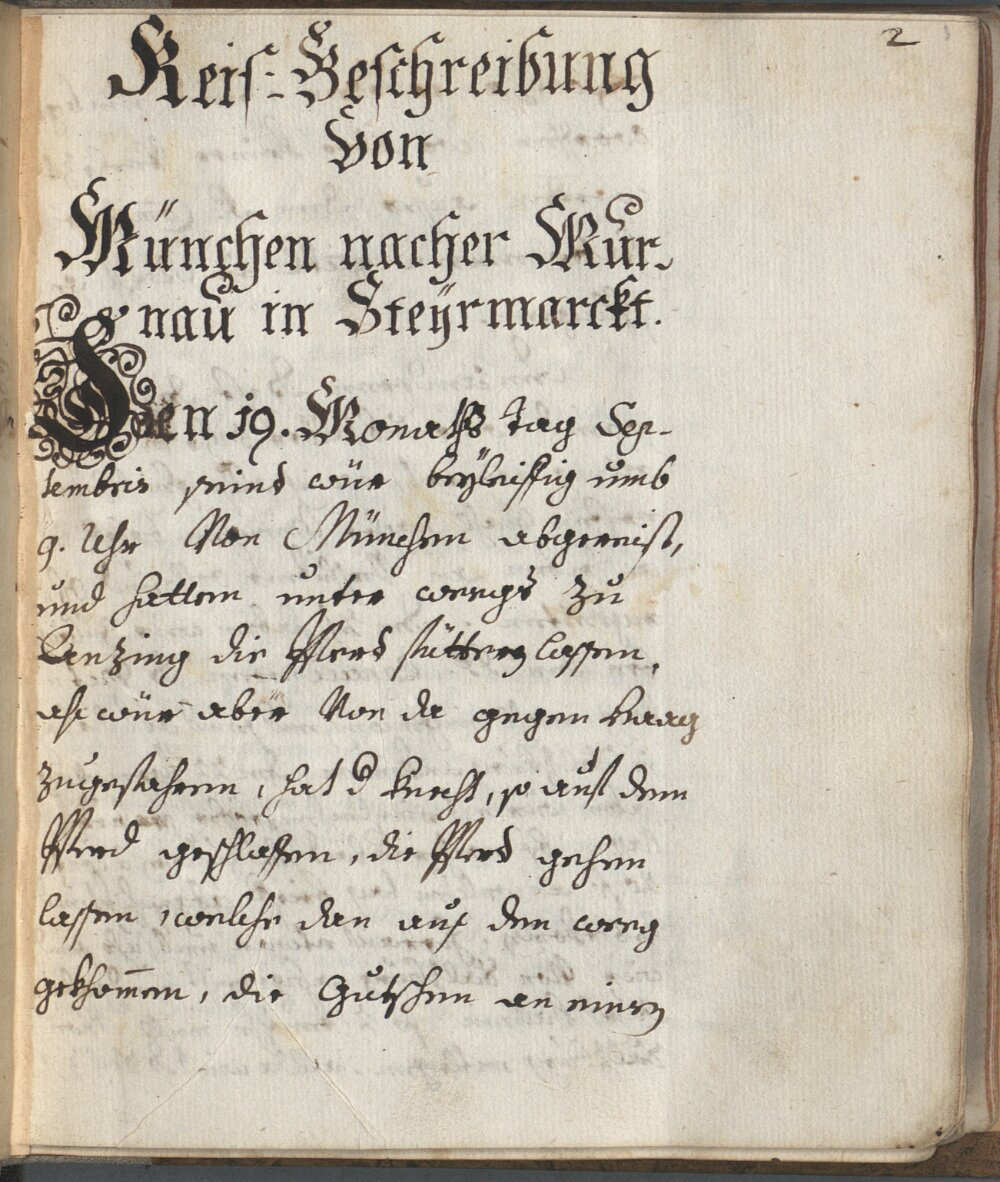 2
Reis-Beschreibung
Von
München nacher Mur-
nau in Steÿrmarckt.
Den 19. Monaths tag Sep-
tembris seind wür beÿleiffig umb
9. Uhr Von München abgereist,
und hatten unter weegs zu
Anzing die Pferd füttern lassen,
als wür aber Von da gegen Haag
zugefahren, hat d Knecht, so auf dem
Pferd geschlaffen, die Pferd gehen
lassen, welche dan aus dem weeg
gekhom̄en, die Gutschen an einen